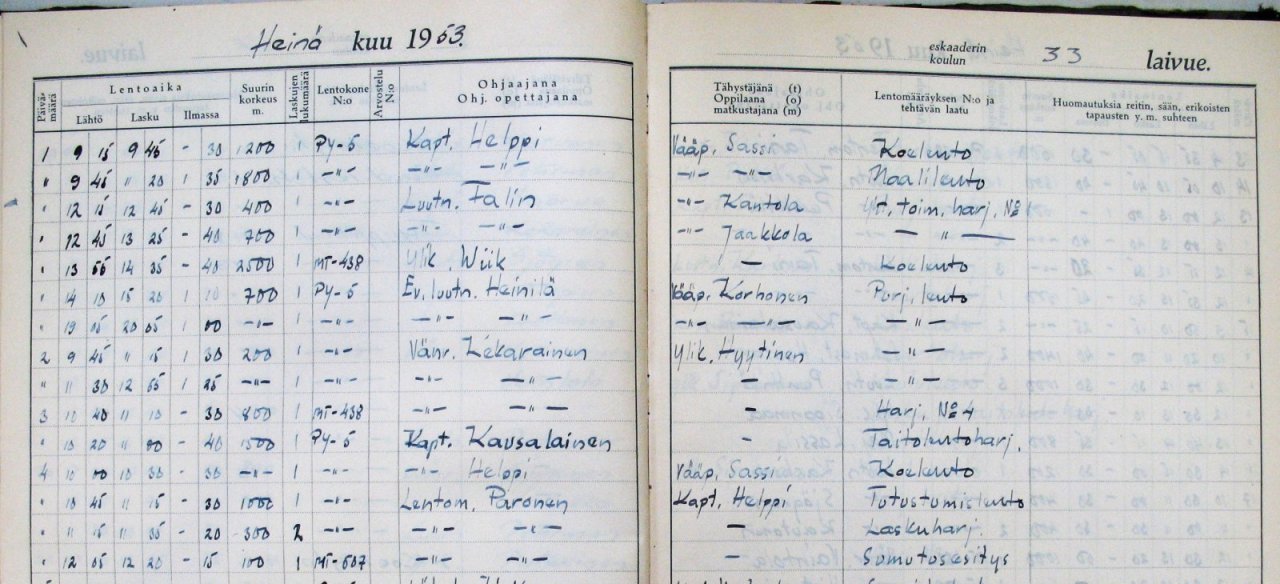 Heinä kuu 1953.
eskaaderin
koulun 33 laivue.
Päivä-
määrä
Lentoaika
Lähtö Lasku Ilmassa
Suurin
korkeus
m.
Laskujen
lukumäärä
Lentokone
N:o
Arvostelu
N:o
Ohjaajana
Ohj. opettajana
Tähystäjänä (t)
Oppilaana (o)
matkustajana (m)
Lentomääräyksen N:o ja
tehtävän laatu
Huomautuksia reitin, sään, erikoisten
tapausten y. m. suhteen
1 9 15 9 45 - 30 1200 1 PY-5 Kapt. Helppi Vääp. Sassi Koelento
" 9 45 11 20 1 35 1800 1 -"- -"- -"- -"- -"- Maalilento
" 12 15 12 45 - 30 400 1 -"- Luutn. Falin -"- Kantola Yt. toim. harj. No 1
" 12 45 13 25 - 40 700 1 -"- -"- -"- -"- Jaakkola - " -
" 13 55 14 35 - 40 2500 1 MT-438 Ylik. Wiik - Koelento
" 14 10 15 20 1 10 700 1 PY-5 Ev.luutn. Heinilä Vääp. Korhonen Purj. lento
" 19 05 20 05 1 00 -"- 1 -"- -"- -"- -"- -"- -"-
2 9 45 11 15 1 30 200 1 -"- Vänr. Kekarainen Ylik. Hyytinen -"-
" 11 30 12 55 1 25 -"- 1 -"- -"- -"- -"-
3 10 40 11 10 - 30 800 1 MT-438 -"- -"- - Harj. No 4
" 10 20 11 00 - 40 1500 1 PY-5 Kapt. Kausalainen - Taitolentoharj.
4 10 00 10 30 - 30 -"- 1 -"- -"- Helppi Vääp. Sassi Koelento
" 10 45 11 15 - 30 1000 1 -"- Lentom. Paronen Kapt. Helppi Tutustumislento
" 11 15 11 35 - 20 300 2 -"- -"- -"- - Laskuharj.
" 12 05 12 20 - 15 100 1 MT-507 -"- -"- - Sumutusesitys